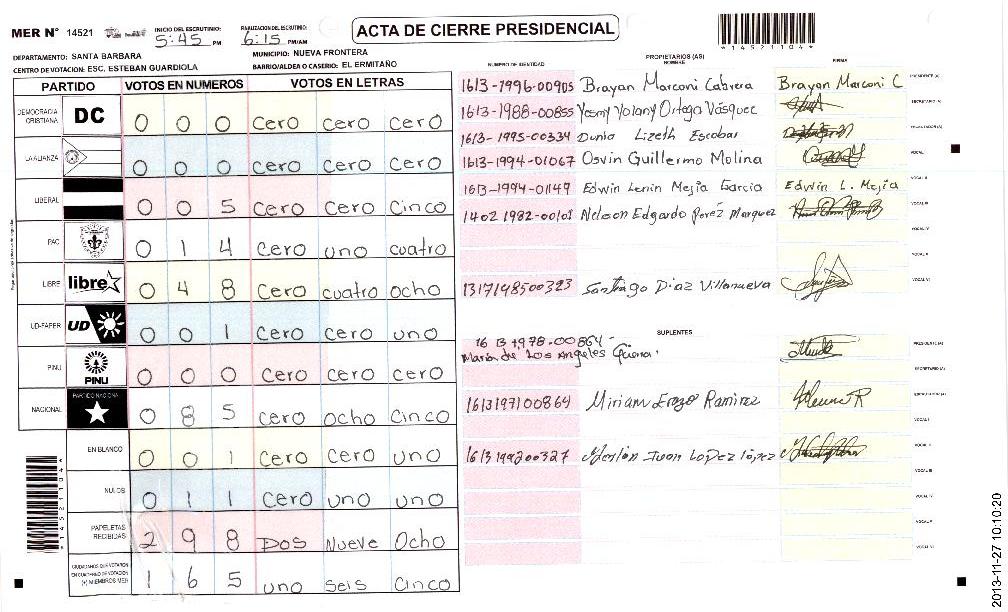 MER N° 14521
INICIO DEL ESCRUTINIO: 5:45 PM
FINALIZACION DEL ESCRUTINIO: 6:15 PM/AM
ACTA DE CIERRE PRESIDENCIAL
*14521104*
DEPARTAMENTO: SANTA BARBARA
MUNICIPIO: NUEVA FRONTERA
CENTRO DE VOTACION: ESC. ESTEBAN GUARDIOLA
BARRIO/ALDEA O CASERIO: EL ERMITAÑO
PARTIDO VOTOS EN NUMEROS VOTOS EN LETRAS
DEMOCRACIA CRISTIANA DC 0 0 0 Cero Cero Cero
LA ALIANZA 0 0 0 Cero Cero Cero
LIBERAL 0 0 5 Cero Cero Cinco
PAC 0 1 4 Cero uno cuatro
LIBRE libre 0 4 8 Cero cuatro ocho
UD-FAPER UD 0 0 1 Cero Cero uno
PINU PINU 0 0 0 Cero Cero Cero
NACIONAL PARTIDO NACIONAL 0 8 5 Cero Ocho Cinco
EN BLANCO 0 0 1 Cero Cero uno
NULOS 0 1 1 Cero uno uno
PAPELETAS RECIBIDAS 2 9 8 Dos Nueve Ocho
CIUDADANOS QUE VOTARON EN CUADERNO DE VOTACION (+) MIEMBROS MER 1 6 5 uno seis Cinco
*14521104*
PROPIETARIOS (AS)
NUMERO DE IDENTIDAD NOMBRE FIRMA
1613-1996-00905 Brayan Marconi Cabrera Brayan Marconi C PRESIDENTE (A)
1613-1988-00855 Yesmy Yolany Ortega Vásquez SECRETARIO (A)
1613-1995-00334 Dunia Lizeth Escobar ESCRUTADOR (A)
1613-1994-01067 Osvin Guillermo Molina VOCAL I
1613-1994-01149 Edwin Lenin Mejia Garcia Edwin L. Mejia VOCAL II
1402 1982-00101 Nelson Edgardo Perez Marquez VOCAL III
VOCAL IV
VOCAL V
1317198500323 Santiago Diaz Villanueva VOCAL VI
SUPLENTES
16 13 1978-00864- PRESIDENTE (A)
Maria de Los Angeles
SECRETARIO (A)
1613197100864 Miriam Erazo Ramirez ESCRUTADOR (A)
VOCAL I
1613199200327 Juan Lopez lópez VOCAL II
VOCAL III
VOCAL IV
VOCAL V
VOCAL VI
2013-11-27 10:10:20